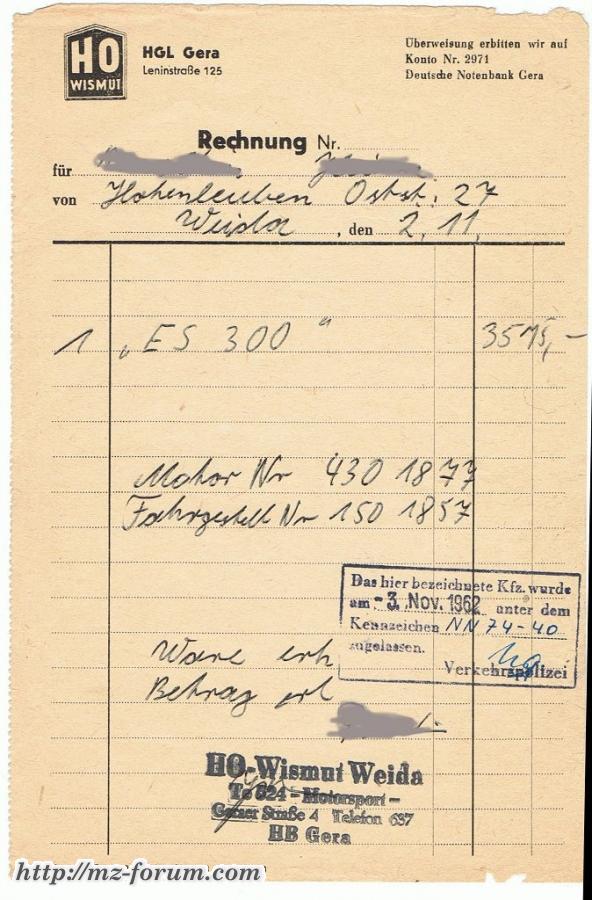 HO
WISMUT
HGL Gera
Leninstraße 125
Überweisung erbitten wir auf
Konto Nr. 2971
Deutsche Notenbank Gera
Rechnung Nr.
für
von Hohenleuben Ostst. 27
Weida , den 2. 11.
1 „ES 300" 3515,-
Motor Nr 430 1877
Fahrgestell Nr 150 1857
Das hier bezeichnete Kfz. wurde
am -3. Nov. 1962 unter dem
Kennzeichen NN 74-40
zugelassen.
Verkehrspolizei
Ware erh
Betrag erl
HO-Wismut Weida
Te 324 - Motorsport -
Geraer Straße 4 Telefon 637
HB Gera
http://mz-forum.com